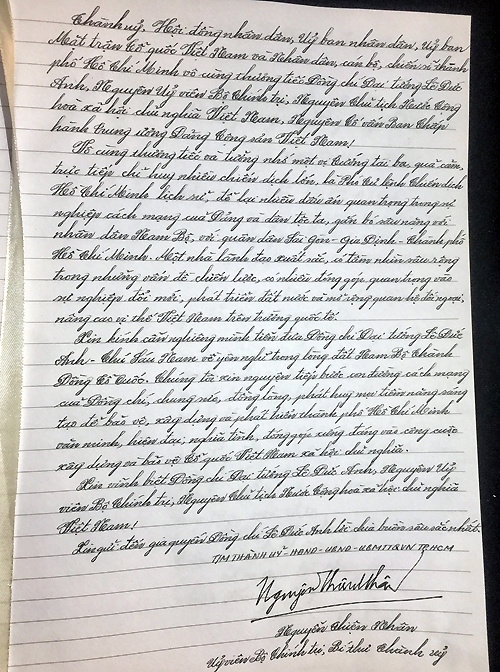 Thành uỷ, Hội đồng nhân dân, Uỷ ban nhân dân, Uỷ ban
Mặt trận Tổ quốc Việt Nam và Nhân dân, cán bộ, chiến sĩ thành
phố Hồ Chí Minh vô cùng thương tiếc Đồng chí Đại tướng Lê Đức
Anh, Nguyên Uỷ viên Bộ Chính trị, Nguyên Chủ tịch Nước Cộng
hoà xã hội chủ nghĩa Việt Nam, Nguyên Cố vấn Ban Chấp
hành Trung ương Đảng Cộng sản Việt Nam!
Vô cùng thương tiếc và tưởng nhớ một vị tướng tài ba, quả cảm,
trực tiếp chỉ huy nhiều chiến dịch lớn, là Phó Tư lệnh Chiến dịch
Hồ Chí Minh lịch sử, để lại nhiều dấu ấn quan trọng trong sự
nghiệp cách mạng của Đảng và dân tộc ta, gắn bó sâu nặng với
nhân dân Nam Bộ, với quân dân Sài Gòn - Gia Định - Thành phố
Hồ Chí Minh. Một nhà lãnh đạo xuất sắc, có tầm nhìn sâu rộng
trong những vấn đề chiến lược, có nhiều đóng góp quan trọng vào
sự nghiệp đổi mới, phát triển đất nước và mở rộng quan hệ đối ngoại,
nâng cao vị thế Việt Nam trên trường quốc tế!
Xin kính cẩn nghiêng mình tiễn đưa Đồng chí Đại tướng Lê Đức
Anh - Chú Sáu Nam về yên nghỉ trong lòng đất Nam Bộ Thành
Đồng Tổ Quốc. Chúng tôi xin nguyện tiếp bước con đường cách mạng
của Đồng chí, chung sức, đồng lòng, phát huy mọi tiềm năng sáng
tạo để bảo vệ, xây dựng và phát triển thành phố Hồ Chí Minh
văn minh, hiện đại, nghĩa tình, đóng góp xứng đáng vào công cuộc
xây dựng và bảo vệ Tổ quốc Việt Nam xã hội chủ nghĩa.
Xin vĩnh biệt Đồng chí Đại tướng Lê Đức Anh, Nguyên Uỷ
viên Bộ Chính trị, Nguyên Chủ tịch Nước Cộng hoà xã hội chủ nghĩa
Việt Nam!
Xin gửi đến gia quyến Đồng chí Lê Đức Anh lời chia buồn sâu sắc nhất.
TM THÀNH UỶ - HĐND - UBND - UBMTTQVN TP.HCM
Nguyễn Thiện Nhân
Nguyễn Thiện Nhân
Uỷ viên Bộ Chính trị, Bí thư Thành uỷ